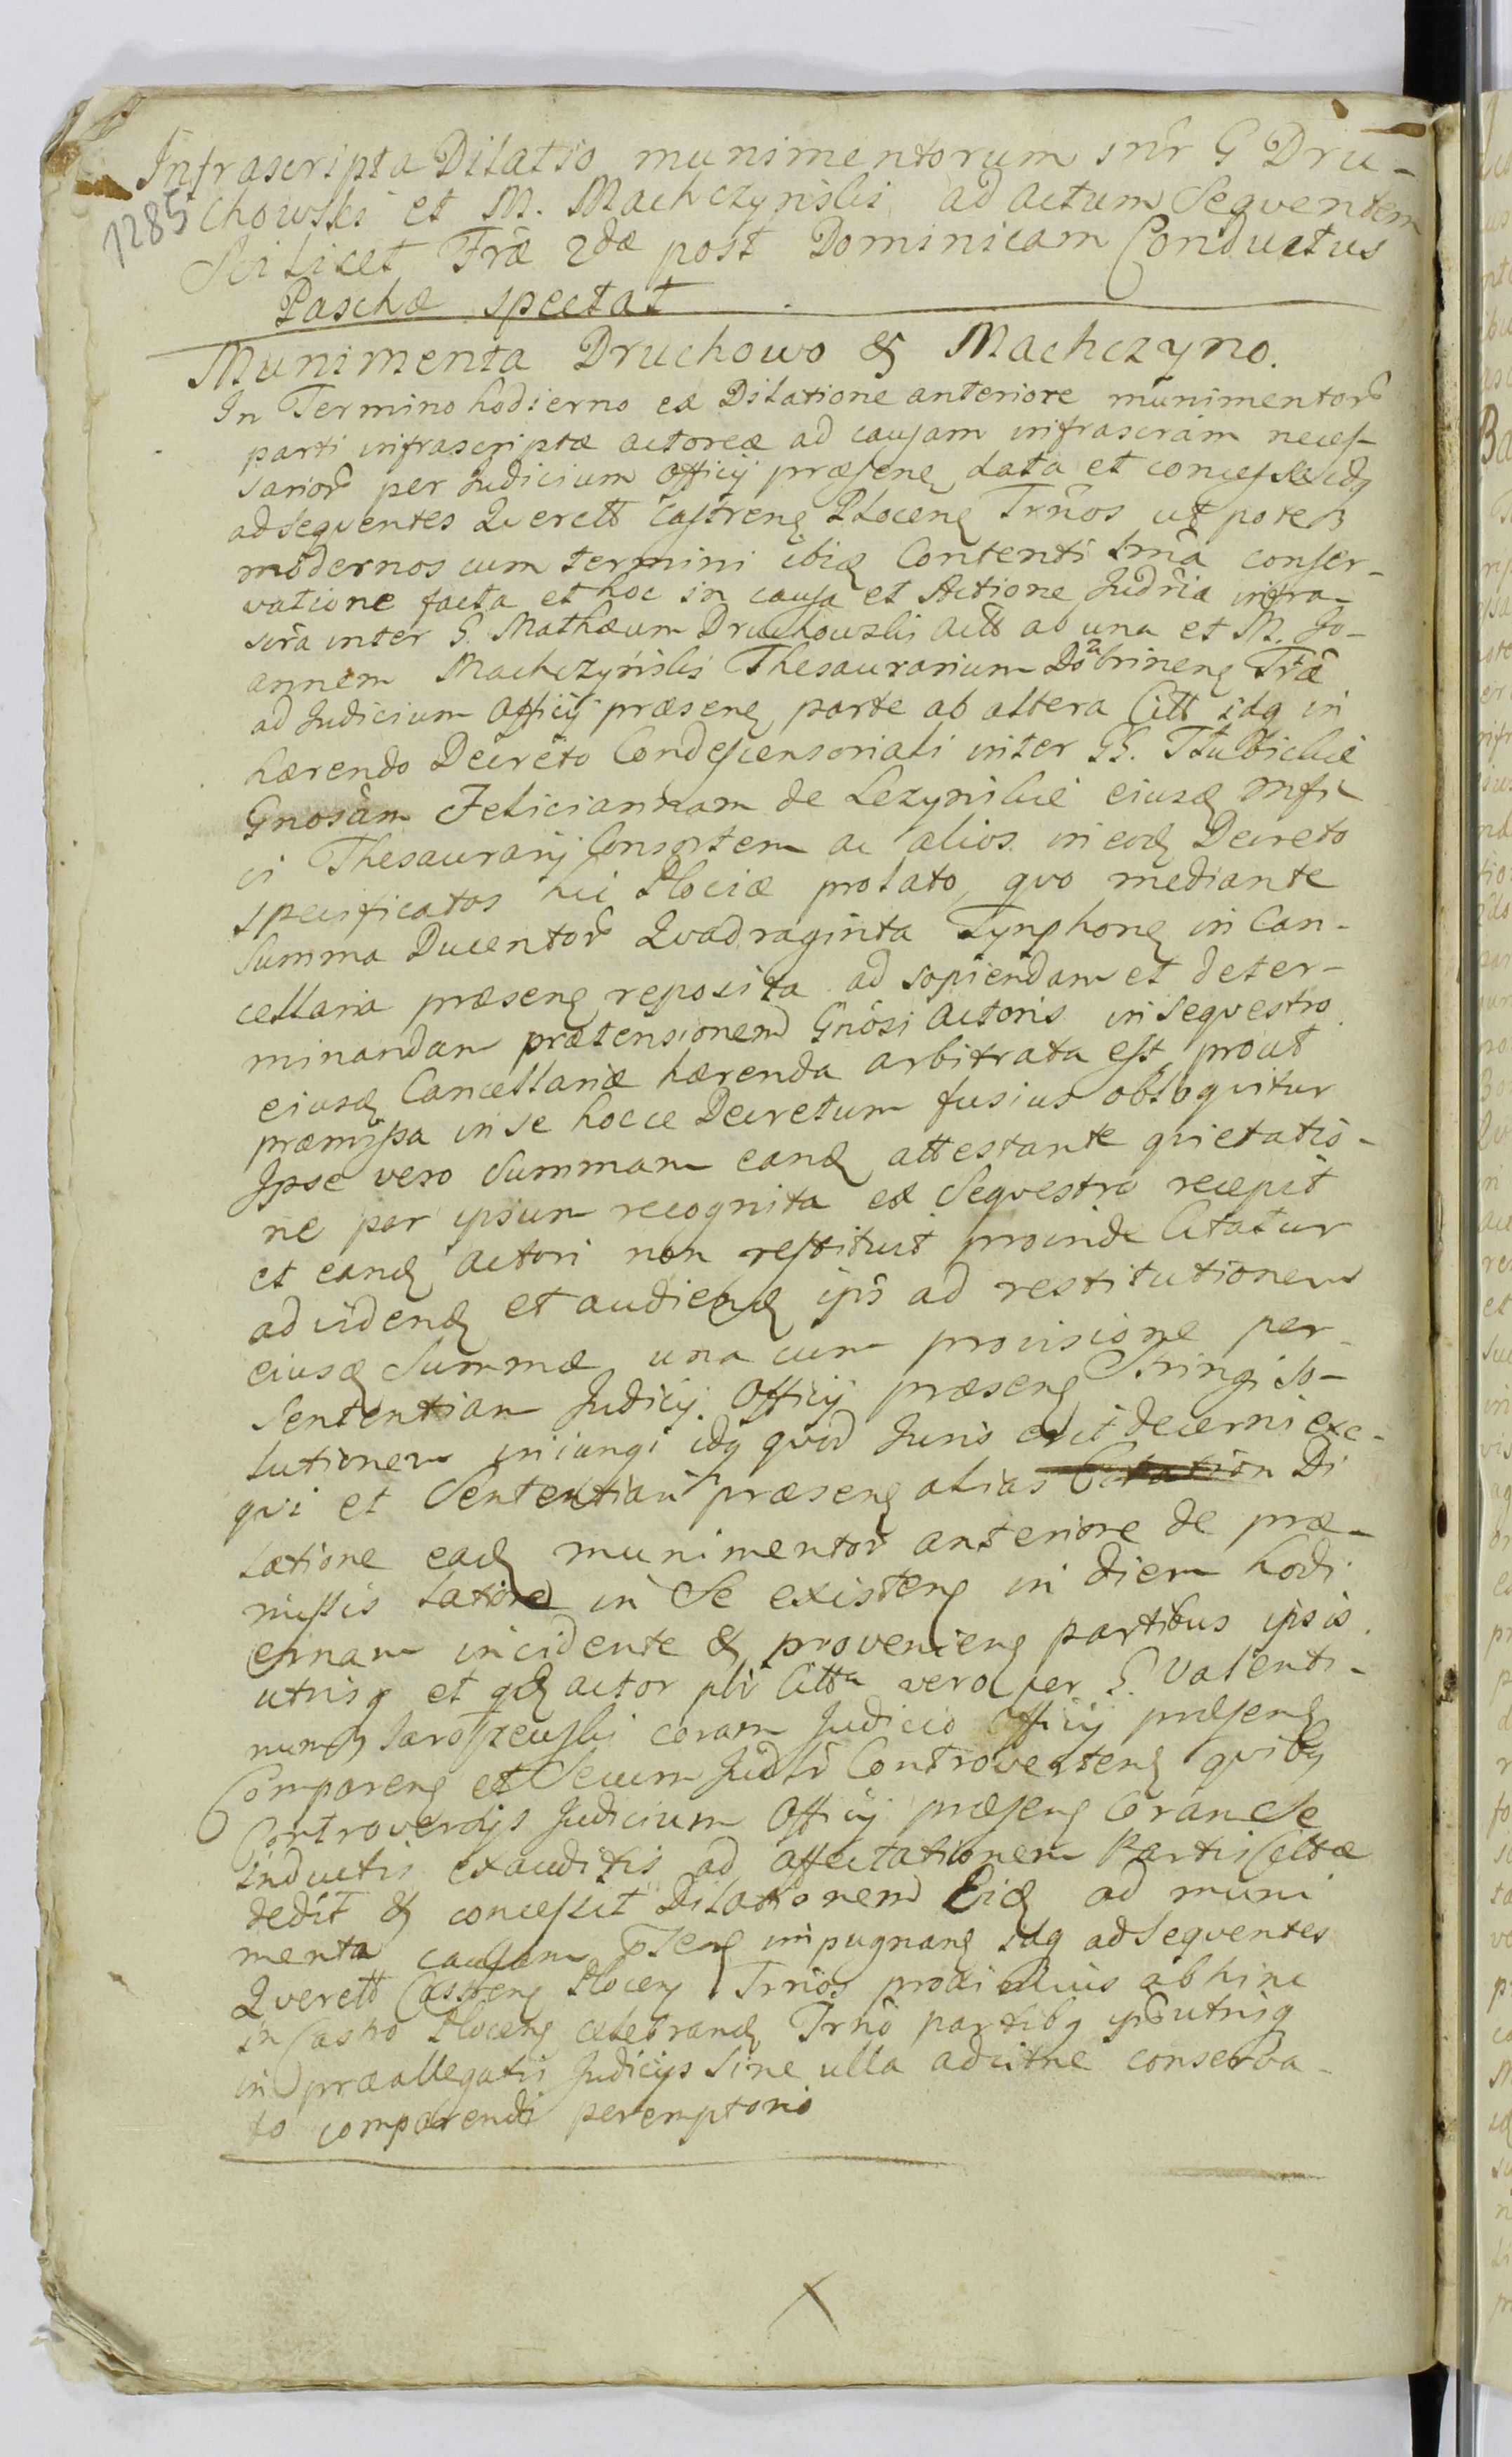 Infrascripta Dilatio munimentorum intr G Dru-
chowski et M. Machczyński ad actum Sequentem
Scilicet Fræ 2dæ post Dominicam Conductus
Paschæ spectat
1285
Munimenta Druchowo & Machczyno.
In Termino hodierno ex Dilatione anteriore munimentor
parti infrascriptæ actoreæ ad causam infrascram neces-
sarior per Judicium Officij præsens data et concessa idq
ad sequentes Querell Castrens Plocens Trnos ut pote
modernos cum termini ibiq Contenti Smâ conser-
vatione facta et hoc in causa et Actione Judria infra-
scra inter G. Mathæum Druchowski Act ab una et M. Jo-
annem Machczyński Thesaurarium Dobrinens Træ
ad Judicium Officij præsens parte ab altera Citt idq in
hærendo Decreto Condescensoriali inter GG.
Gnosam Feliciannam de Lezynskie eiusd Mfi
ci Thesaurarij Consortem ac alios in eod Decreto
specificatos hic Plociæ prolato, quo mediante
Summa Ducentor Quadraginta Tynphons in Can-
cellaria præsens reposita ad sopiendam et deter-
minandam prætensionem Gnosi Actoris in sequestro
eiusd Cancellariæ hærenda arbitrata est, prout
præmissa in se hocce Decretum fusius obloquitur
Ipse vero Summam eand attestante quietatio-
ne per ipsum recognita ex Sequestro recepit
et eand actori non restituit proinde Citatur
ad vidend et audiend ips ad restitutionem
eiusd Summæ una cum provisione per
Sententiam Judicij Officij præsens Stringi so-
lutionem iniungi idq quod Juris erit decerni exe-
qui et Sententiam præsens alias Citation Di
latione ead munimentor anteriore de præ-
missis latione in Se existens in diem hodi
ernam incidente & proveniens partibus ipsis
utrisq et qd actor plr Citta vero per G. Valenti-
num coram Judicio Officij præsens
Comparens et Secum Judlr Controvertens quibq
Controversijs Judicium Officij præsens Coram Se
inductis exauditis ad affectationem Partis Cittæ
dedit & concessit Dilationem Eid ad muni
menta causam pdens impugnans idq ad Sequentes
Querell Castrens Plocens Trnos proximius abhinc
in Castro Plocens celebrand Trno partibq ips utrisq
in præallegatis Judicijs Sine ulla adcitne conserva-
to comparendi peremptorio